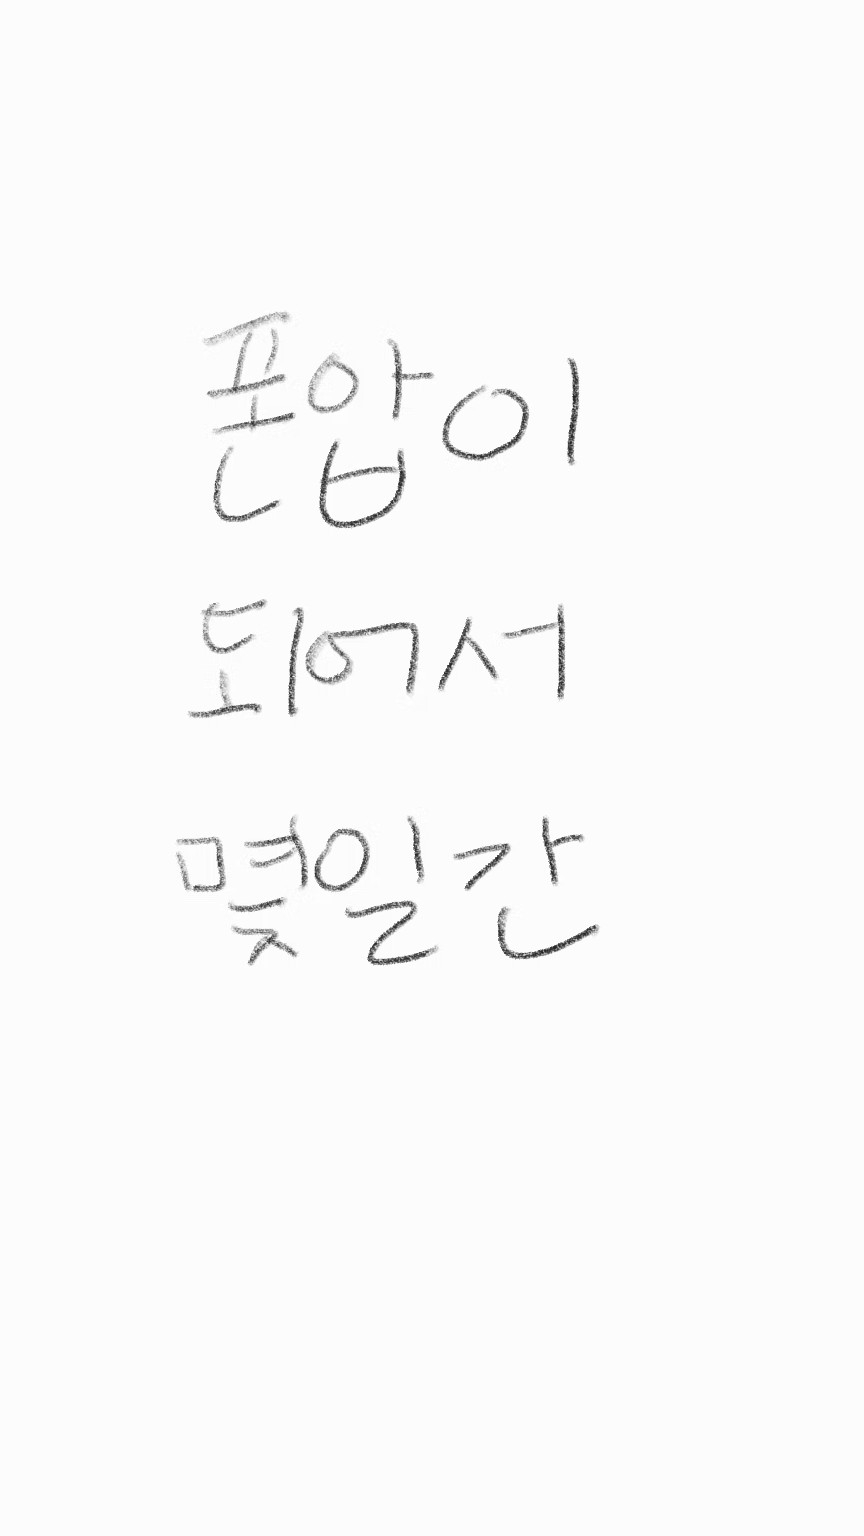 폰압이
되어서
몇일간